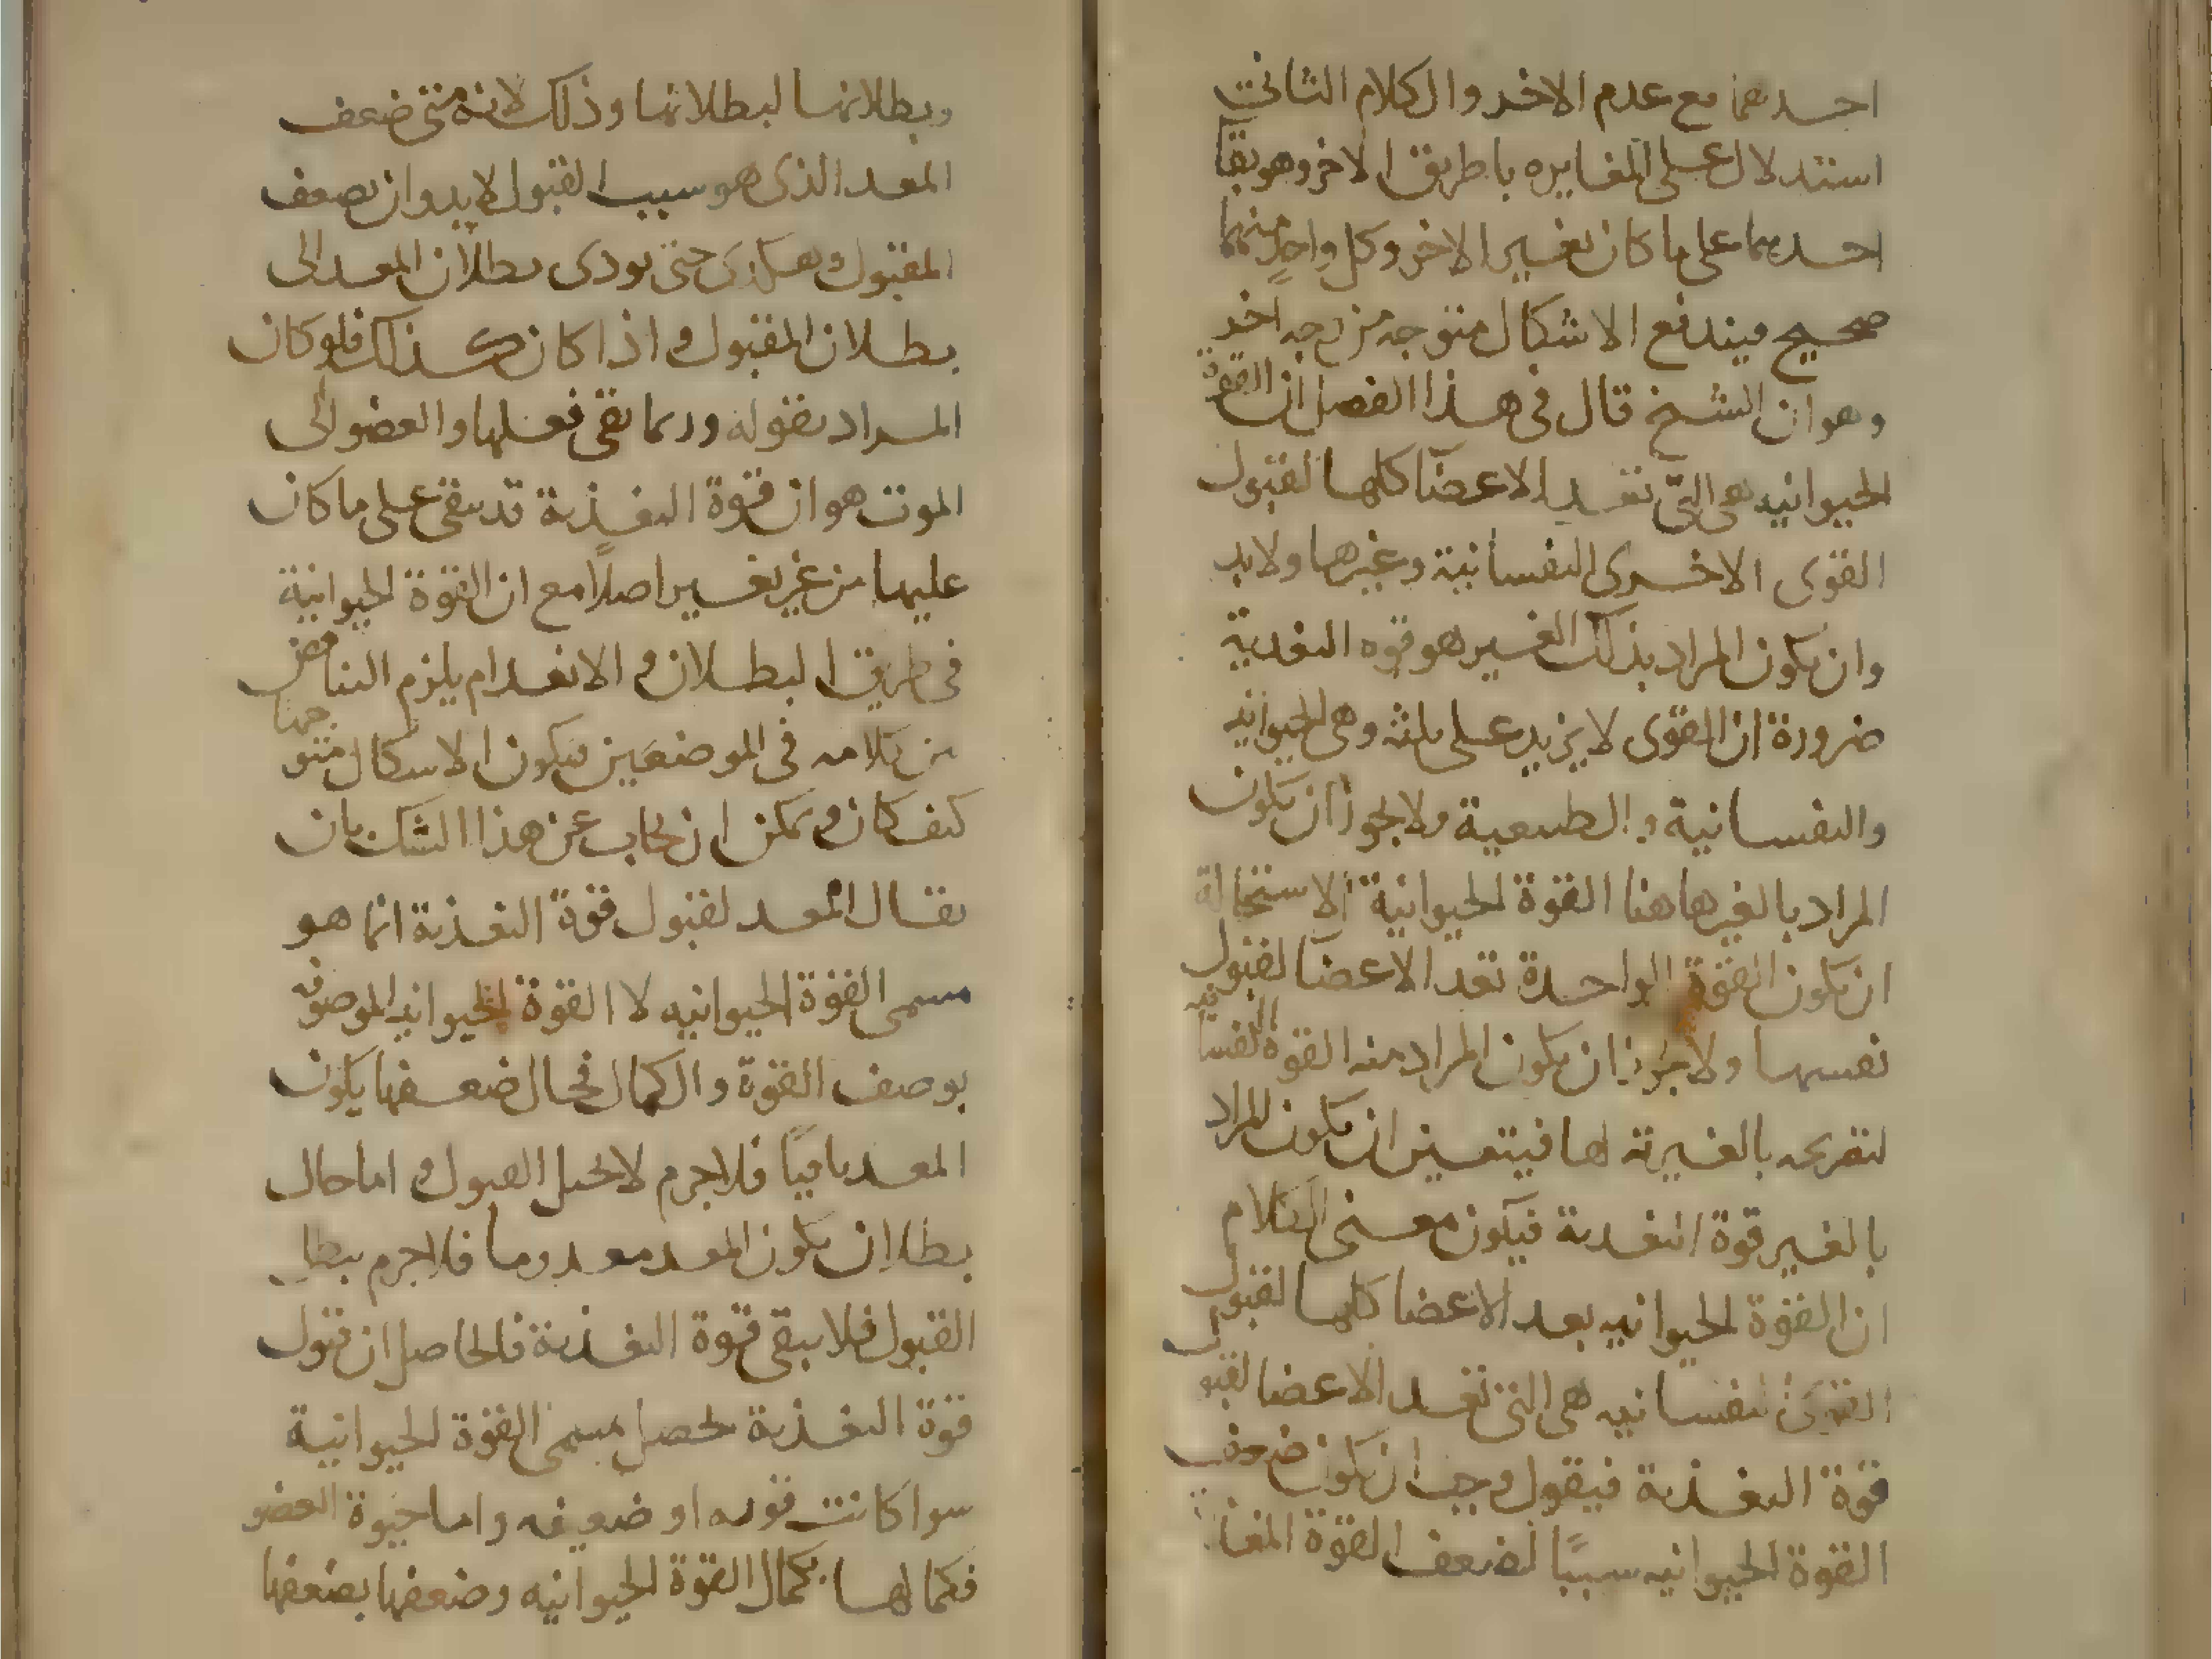 احدهما مع عدم الاخر والكلام الثانى
استدلال على المغايره باطريق الاخر وهو بقا
احدهما على ما كان بغير الاخر وكل واحد منهما
صحيح فيندفع الاشكال متوجه من وجه اخر
وهو ان الشيخ قال فى هذا الفصل ان القوة
الحيوانيه هى التى تعد الاعضا كلها لقبول
القوى الاخرى النفسانية وغيرها ولابد
وان يكون المراد بذلك الغير هو قوه التغدية
ضرورة ان القوى لا يزيد على ثلثه وهى الحيوانيه
والنفسانية والطبيعية ولا يجوز ان يكون
المراد بالغير هاهنا القوة الحيوانية لاستحالة
ان يكون القوة الواحدة تعد الاعضا لقبول
نفسها ولا يجوز ان يكون المراد منه القوة النفسانيه
لتصريحه بالغيرية لها فيتعين ان يكون المراد
بالغير قوة التغدية فيكون معنى الكلام
ان القوة الحيوانيه بعد الاعضا كلها لقبول
القوى النفسانيه هى التى تعد الاعضا لقبول
قوة التغذية فيقول وجب ان يكون ضعف
القوة الحيوانيه سببًا لضعف القوة
وبطلانها لبطلانها وذلك لانه متى ضعف
المعد الذى هو سبب القبول لابد وان يضعف
المقبول وهكذى حتى يودى بطلان المعد الى
بطلان المقبول واذا كان كذلك فلو كان
المراد بقوله وربما بقى فعلها والعضو الى
الموت هو ان قوة التغذية قد تبقى على ما كان
عليها من غير تغير اصلًا مع ان القوة الحيوانية
فى طريق البطلان والانعدام يلزم التناقض
من كلامه فى الموضعين فيكون الاشكال متوجها
كيف كان ويمكن ان يجاب عن هذا الشك بان
يقال المعد لقبول قوة التغذية انما هو
مسمى القوة الحيوانيه لا القوة الحيوانيه الموصوفه
بوصف القوة والكمال فحال ضعفها يكون
المعد باقيًا فلا جرم لا القبول واما حال
بطلان يكون المعد معدوما فلا جرم يبطل
القبول فلا يبقى قوة التغذية فالحاصل ان قبول
قوة التغذية يحصل بمسمى القوة الحيوانية
سوا كانت قويه او ضعيفه واما حيوة العضو
فكمالها بكمال القوة الحيوانيه وضعفها بضعفها